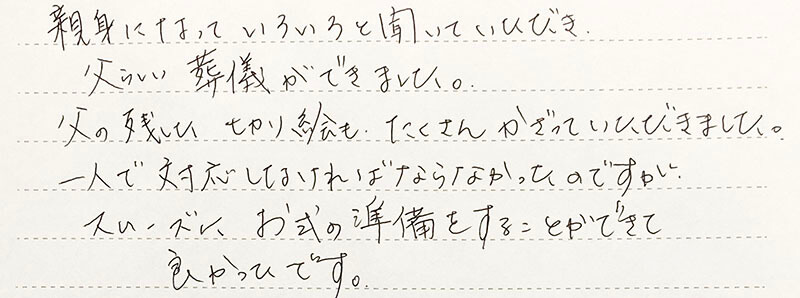 親身になっていろいろと聞いていただき.
父らしい葬儀ができました。
父の残した 切り絵も.たくさんかざっていただきました。
一人で対応しなければならなかったのですが.
スムーズに お式の準備をすることができて
良かったです。